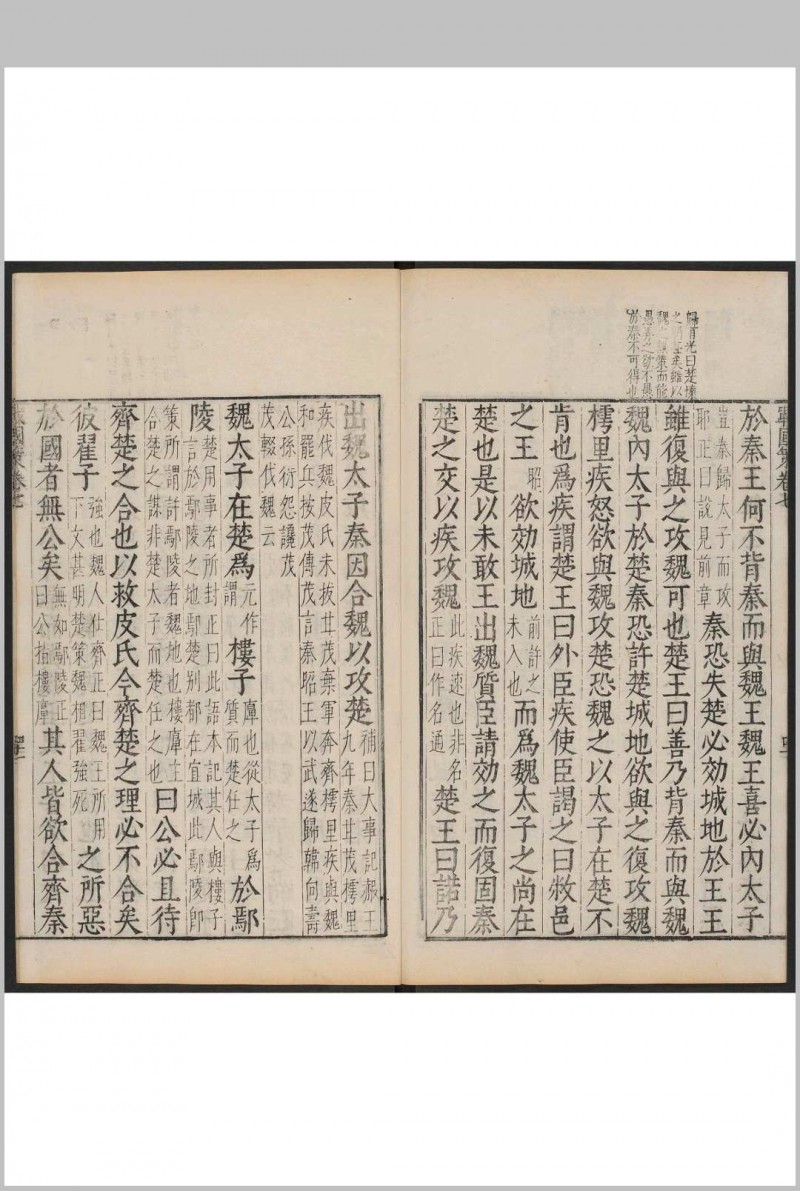 戰國策卷七
歸有光曰楚懷
魏
愚
於秦不可得也
於秦王何不背秦而與魏王魏王喜必內太子
豈秦歸太子而攻耶正曰說見前章秦恐失楚必効城地於王王
雖復與之攻魏可也楚王曰善乃背秦而與魏
魏內太子於楚秦恐許楚城地欲與之復攻魏
樗里疾怒欲與魏攻楚恐魏之以太子在楚不
肯也爲疾謂楚王曰外臣疾使臣謁之曰敝邑
之王昭欲効城地前許之未入也而爲魏太子之尚在
楚也是以未敢王出魏質臣請効之而復固秦
楚之交以疾攻魏此疾速也非名正曰作名通楚王曰諾乃
出魏太子秦因合魏以攻楚補曰大事記赧王九年秦甘茂樗里
疾伐魏皮氏未拔甘茂棄軍奔齊樗里疾與魏
和罷兵按茂傳茂言秦昭王以武遂歸韓向壽
公孫衍怨讒茂
茂輟伐魏云
魏太子在楚爲元作謂樓子廩也從太子爲質而楚任之於鄢
陵楚用事者所封正曰此語本記其人與樓子言於鄢陵之地鄢楚别都在宜城此鄢陵卽
策所謂許鄢陵者魏地也樓廩主合楚之謀非楚太子而楚任之也曰公必且待
齊楚之合也以救皮氏今齊楚之理必不合矣
彼翟子強也魏人仕齊正曰魏王所用下文甚明楚策魏相翟強死之所惡
於國者無公矣無如鄢陵正曰公指樓廩其人皆欲合齊秦